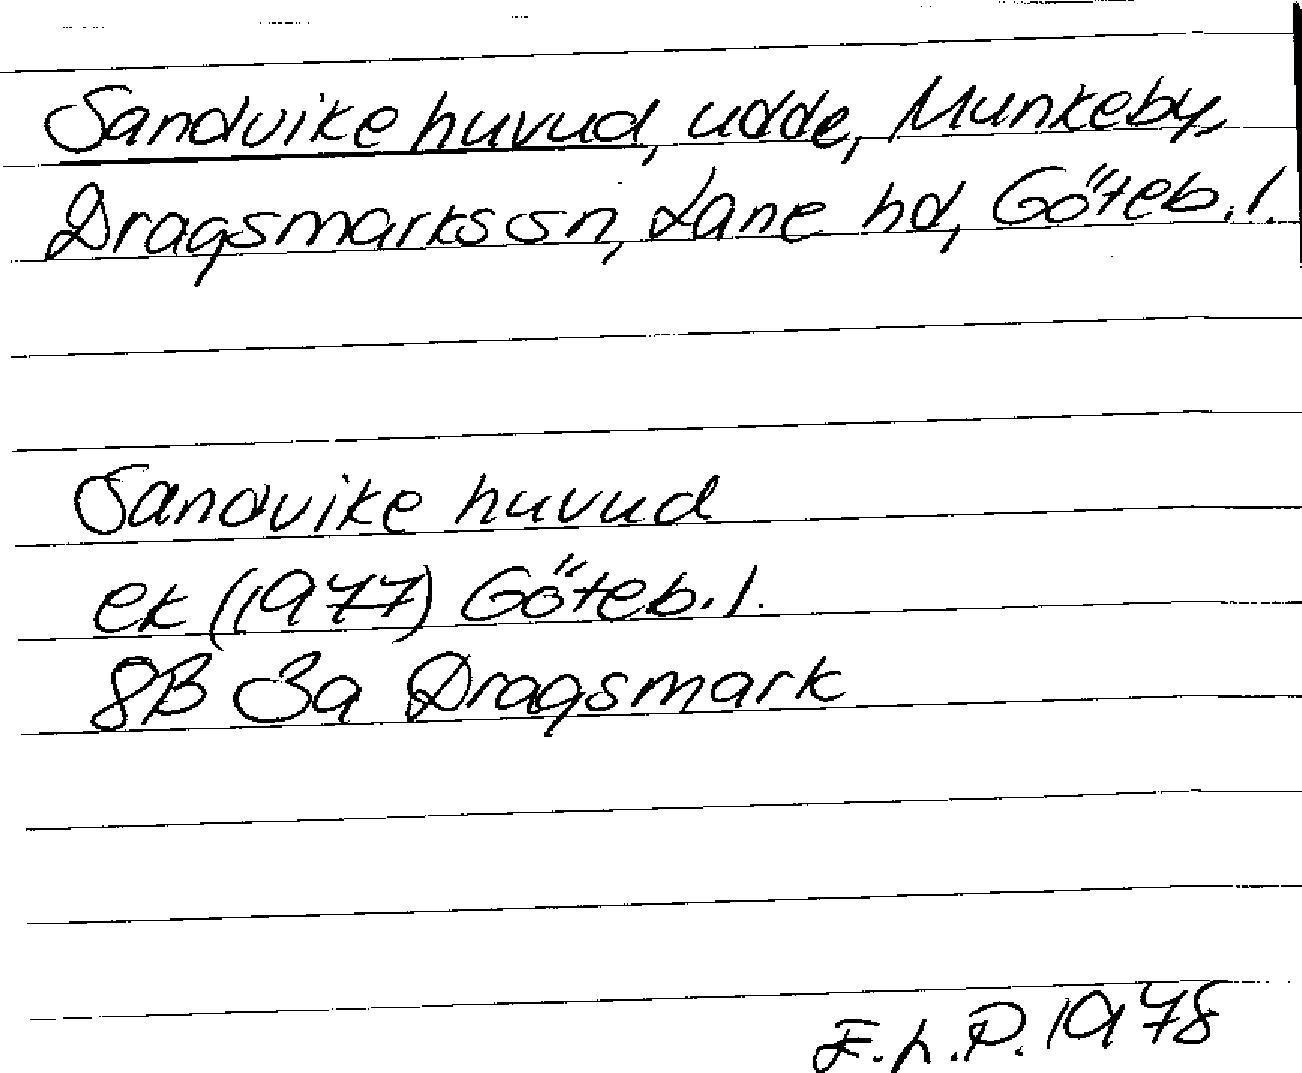 Sandvike huvud, udde, Munkeby,
Dragsmarks sn, Lane hd, Göteb. l.
Sandvike huvud
ek (1977) Göteb. l.
8B 3a Dragsmark
F.h.P. 1978